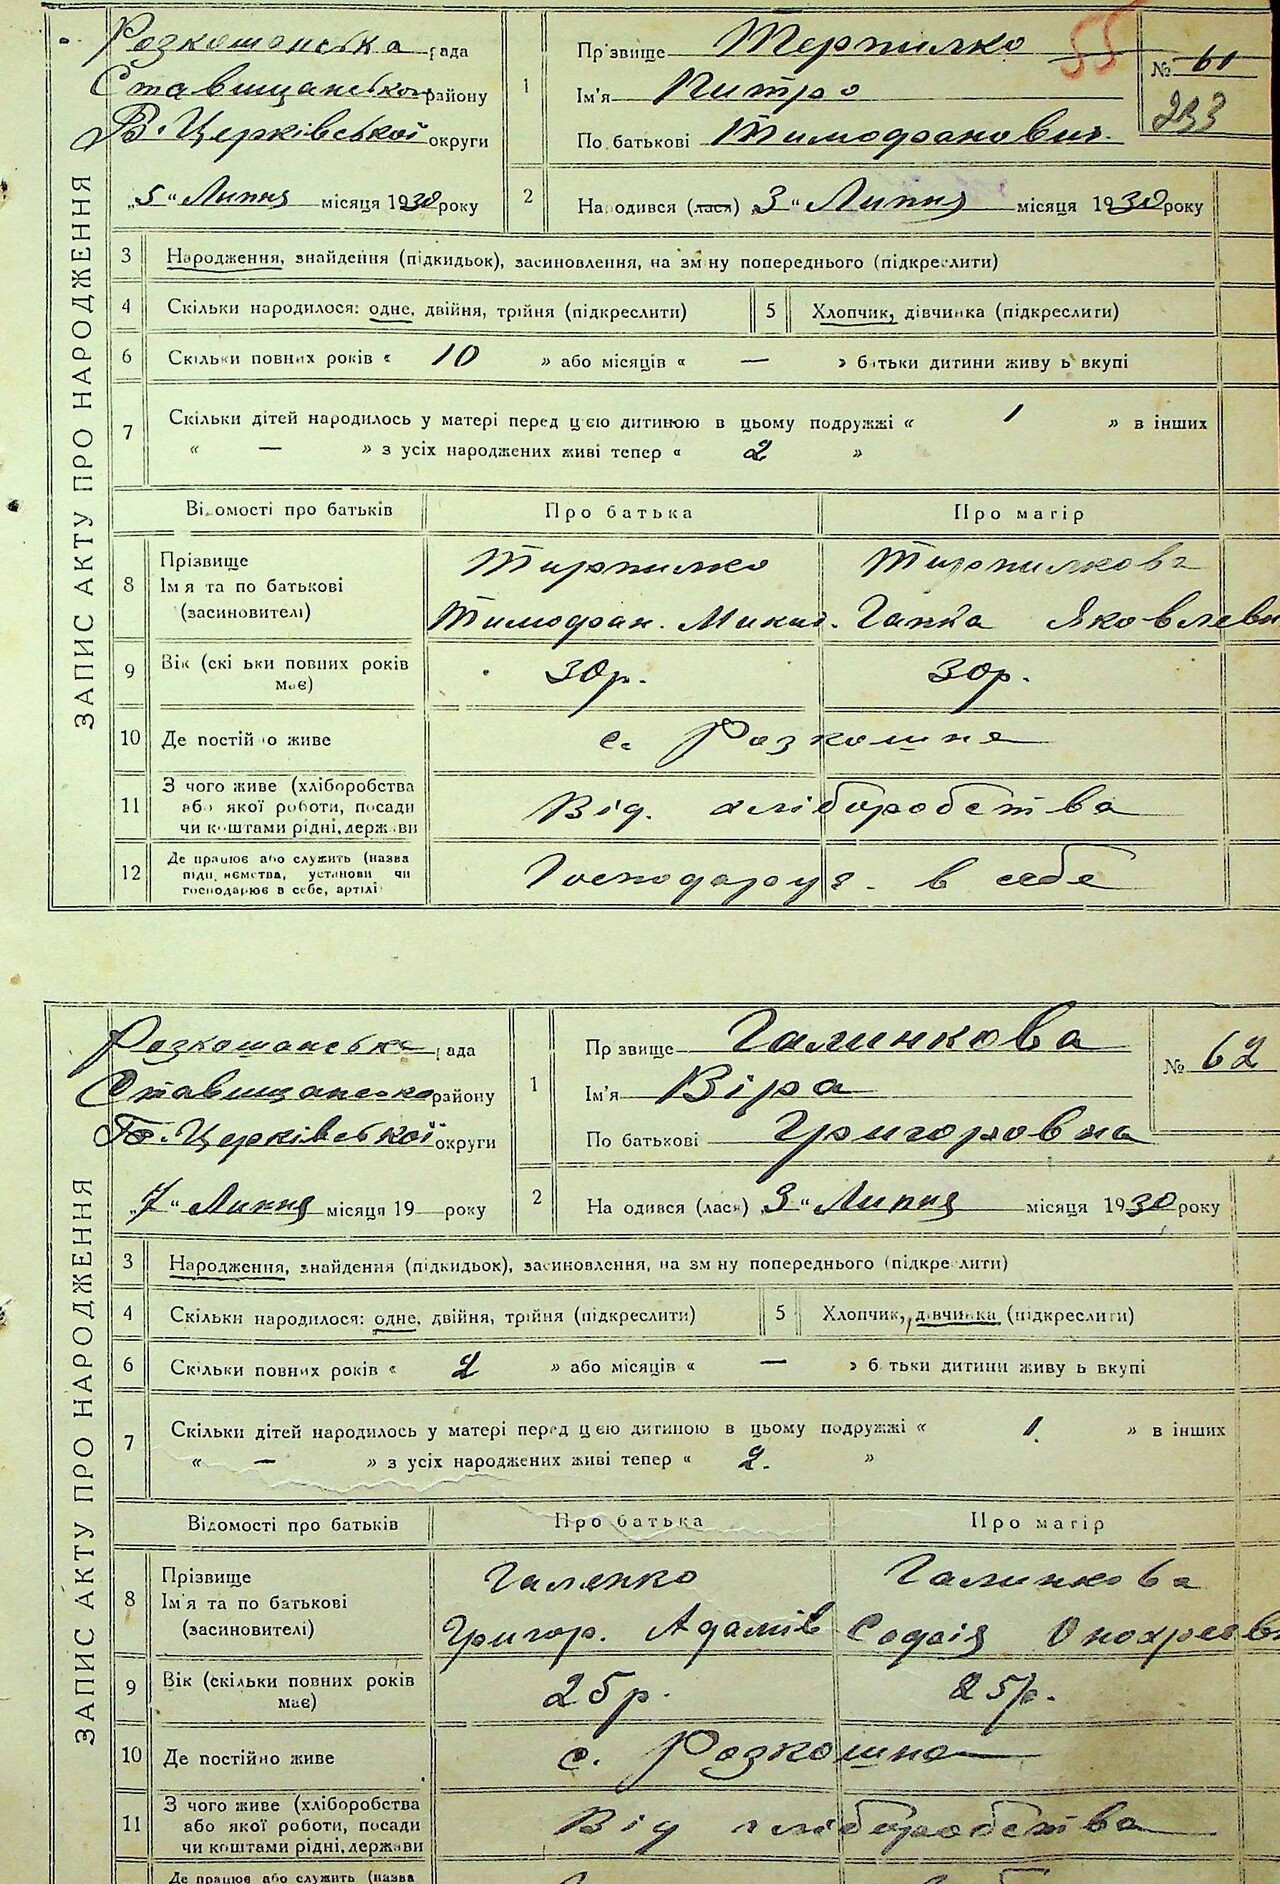 Розкошанська рада
Ставищанського району
Б. Церківської округи
„5“ Липня місяця 1930 року
ЗАПИС АКТУ ПРО НАРОДЖЕННЯ
1
Прізвище Терпилко
Ім'я Питро
По батькові Тимофанович
№ 61
55
233
2
Народився (лася) „3“ Липня місяця 1930 року
3 Народження, знайдення (підкидьок), засиновлення, на зміну попереднього (підкреслити)
4 Скільки народилося: одне, двійня, трійня (підкреслити) 5 Хлопчик, дівчинка (підкреслити)
6 Скільки повних років « 10 » або місяців « — » батьки дитини живуть вкупі
7 Скільки дітей народилось у матері перед цією дитиною в цьому подружжі « 1 » в інших
« — » з усіх народжених живі тепер « 2 »
Відомості про батьків Про батька Про матір
8 Прізвище Ім'я та по батькові (засновителі)
Тирпилко Тирпилкова
Тимофан. Микол. Ганка Яковлевн
9 Вік (скільки повних років має) 30р. 30р.
10 Де постійно живе с. Розкошне
11 З чого живе (хліборобства або якої роботи, посади чи коштами рідні, держави Від. хліборобства
12 Де працює або служить (назва підприємства, установи чи господарює в себе, артілі Господарює в себе
Розкошанська рада
Ставищансько району
Б. Церківської округи
„7“ Липня місяця 19 року
ЗАПИС АКТУ ПРО НАРОДЖЕННЯ
1
Прізвище Галинкова
Ім'я Віра
По батькові Григоровна
№ 62
2
Народився (лася) „3“ Липня місяця 1930 року
3 Народження, знайдення (підкидьок), засиновлення, на зміну попереднього (підкреслити)
4 Скільки народилося: одне, двійня, трійня (підкреслити) 5 Хлопчик, дівчинка (підкреслити)
6 Скільки повних років « 2 » або місяців « — » батьки дитини живуть вкупі
7 Скільки дітей народилось у матері перед цією дитиною в цьому подружжі « 1. » в інших
« — » з усіх народжених живі тепер « 2. »
Відомості про батьків Про батька Про матір
8 Прізвище Ім'я та по батькові (засиновителі)
Галенко Галинкова
Григор. Адамів Софія
9 Вік (скільки повних років має) 25р. 25р.
10 Де постійно живе с. Розкошна
11 З чого живе (хліборобства або якої роботи, посади чи коштами рідні, держави Від хліборобства
Де працює або служить (назва